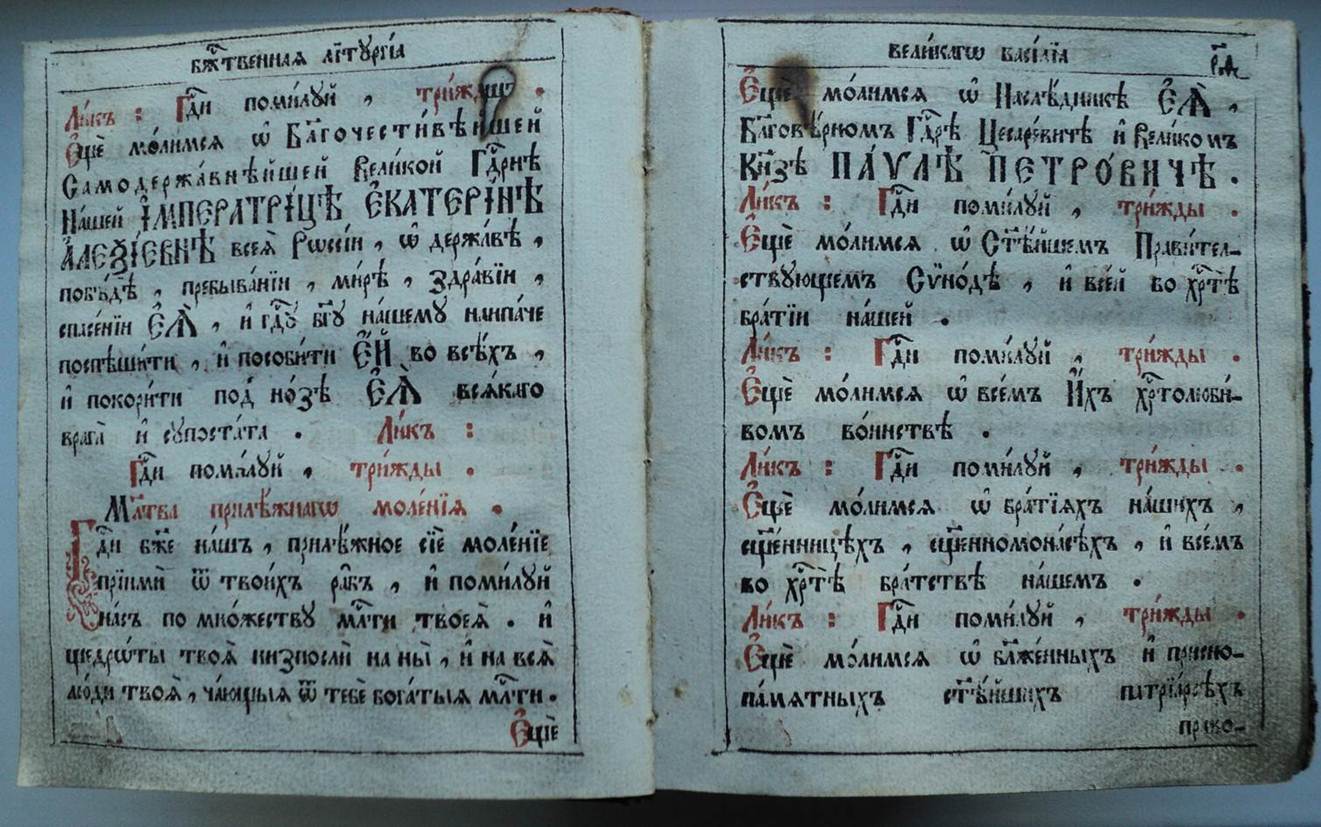 бж҃твенная лїтꙋргі́а
Ли́къ : Гд҃и поми́лꙋй , три́жды .
Є҆щѐ мо́лимсѧ ѡ҆ Бл҃гочести́вѣйшей
Самодержа́внѣйшей Вели́кой Гдⷭ҇рнѣ
На́шей І҆МПЕРАТРІ́ЦѢ Є҆КАТЕРІ́НѢ
А҆ЛЕѮІ́ЕВНѢ всеѧ̀ Рѡссі́и , ѡ҆ держа́вѣ ,
побѣ́дѣ , пребыва́нїи , ми́рѣ , здра́вїи ,
спасе́нїи Є҆Ѧ̀ , и҆ гдⷭ҇ꙋ бг҃ꙋ на́шемꙋ наипа́че
поспѣши́ти , и҆ пособи́ти Є҆́Й во всѣ́хъ ,
и҆ покори́ти под̾ но́зѣ Є҆Ѧ̀ всѧ́каго
врага̀ и҆ сꙋпоста́та . Ли́къ :
Гд҃и поми́лꙋй , три́жды .
Мл҃тва прилѣ́жнагѡ моле́нїѧ .
Гд҃и бж҃е на́шъ , прилѣ́жное сїѐ моле́нїе
прїимѝ ѿ твои́хъ ра̑бъ , и҆ поми́лꙋй
на́съ по мно́жествꙋ млⷭ҇ти твоеѧ̀ . и҆
щедрѡ́ты твоѧ̑ низпослѝ на ны̀ , и҆ на всѧ̑
лю́ди твоѧ̑ , ча́ющыѧ ѿ тебѐ бога́тыѧ млⷭ҇ти .
Є҆щѐ
вели́кагѡ васі́лїа
Є҆щѐ мо́лимсѧ ѡ҆ Наслѣ́дникѣ Є҆Ѧ̀ ,
Бл҃говѣ́рномъ Гдⷭ҇рѣ Цесаре́вичѣ и҆ Вели́комъ
Кнѧ҃зѣ ПА́ѴЛѢ ПЕТРО́ВИЧѢ .
Ли́къ : Гд҃и поми́лꙋй , три́жды .
Є҆щѐ мо́лимсѧ ѡ҆ Ст҃ѣ́йшемъ Прави́тел–
ствꙋющемъ Сѵно́дѣ , и҆ все́й во хрⷭ҇тѣ̀
бра́тїи на́шей .
Ли́къ : Гд҃и поми́лꙋй , три́жды .
Є҆щѐ мо́лимсѧ ѡ҆ все́мъ И҆́хъ хрⷭ҇толюби́–
вомъ во́инствѣ .
Ли́къ : Гд҃и поми́лꙋй , три́жды .
Є҆щѐ мо́лимсѧ ѡ҆ бра́тїѧхъ на́шихъ ,
сщ҃е́нницѣхъ , сщ҃енномона́сѣхъ , и҆ все́мъ
во хрⷭ҇тѣ̀ бра́тствѣ на́шемъ .
Ли́къ : Гд҃и поми́лꙋй , три́жды .
Є҆щѐ мо́лимсѧ ѡ҆ бл҃же́нныхъ и҆ присно–
па́мѧтныхъ ст҃ѣ́йшихъ патрїа́рсѣхъ